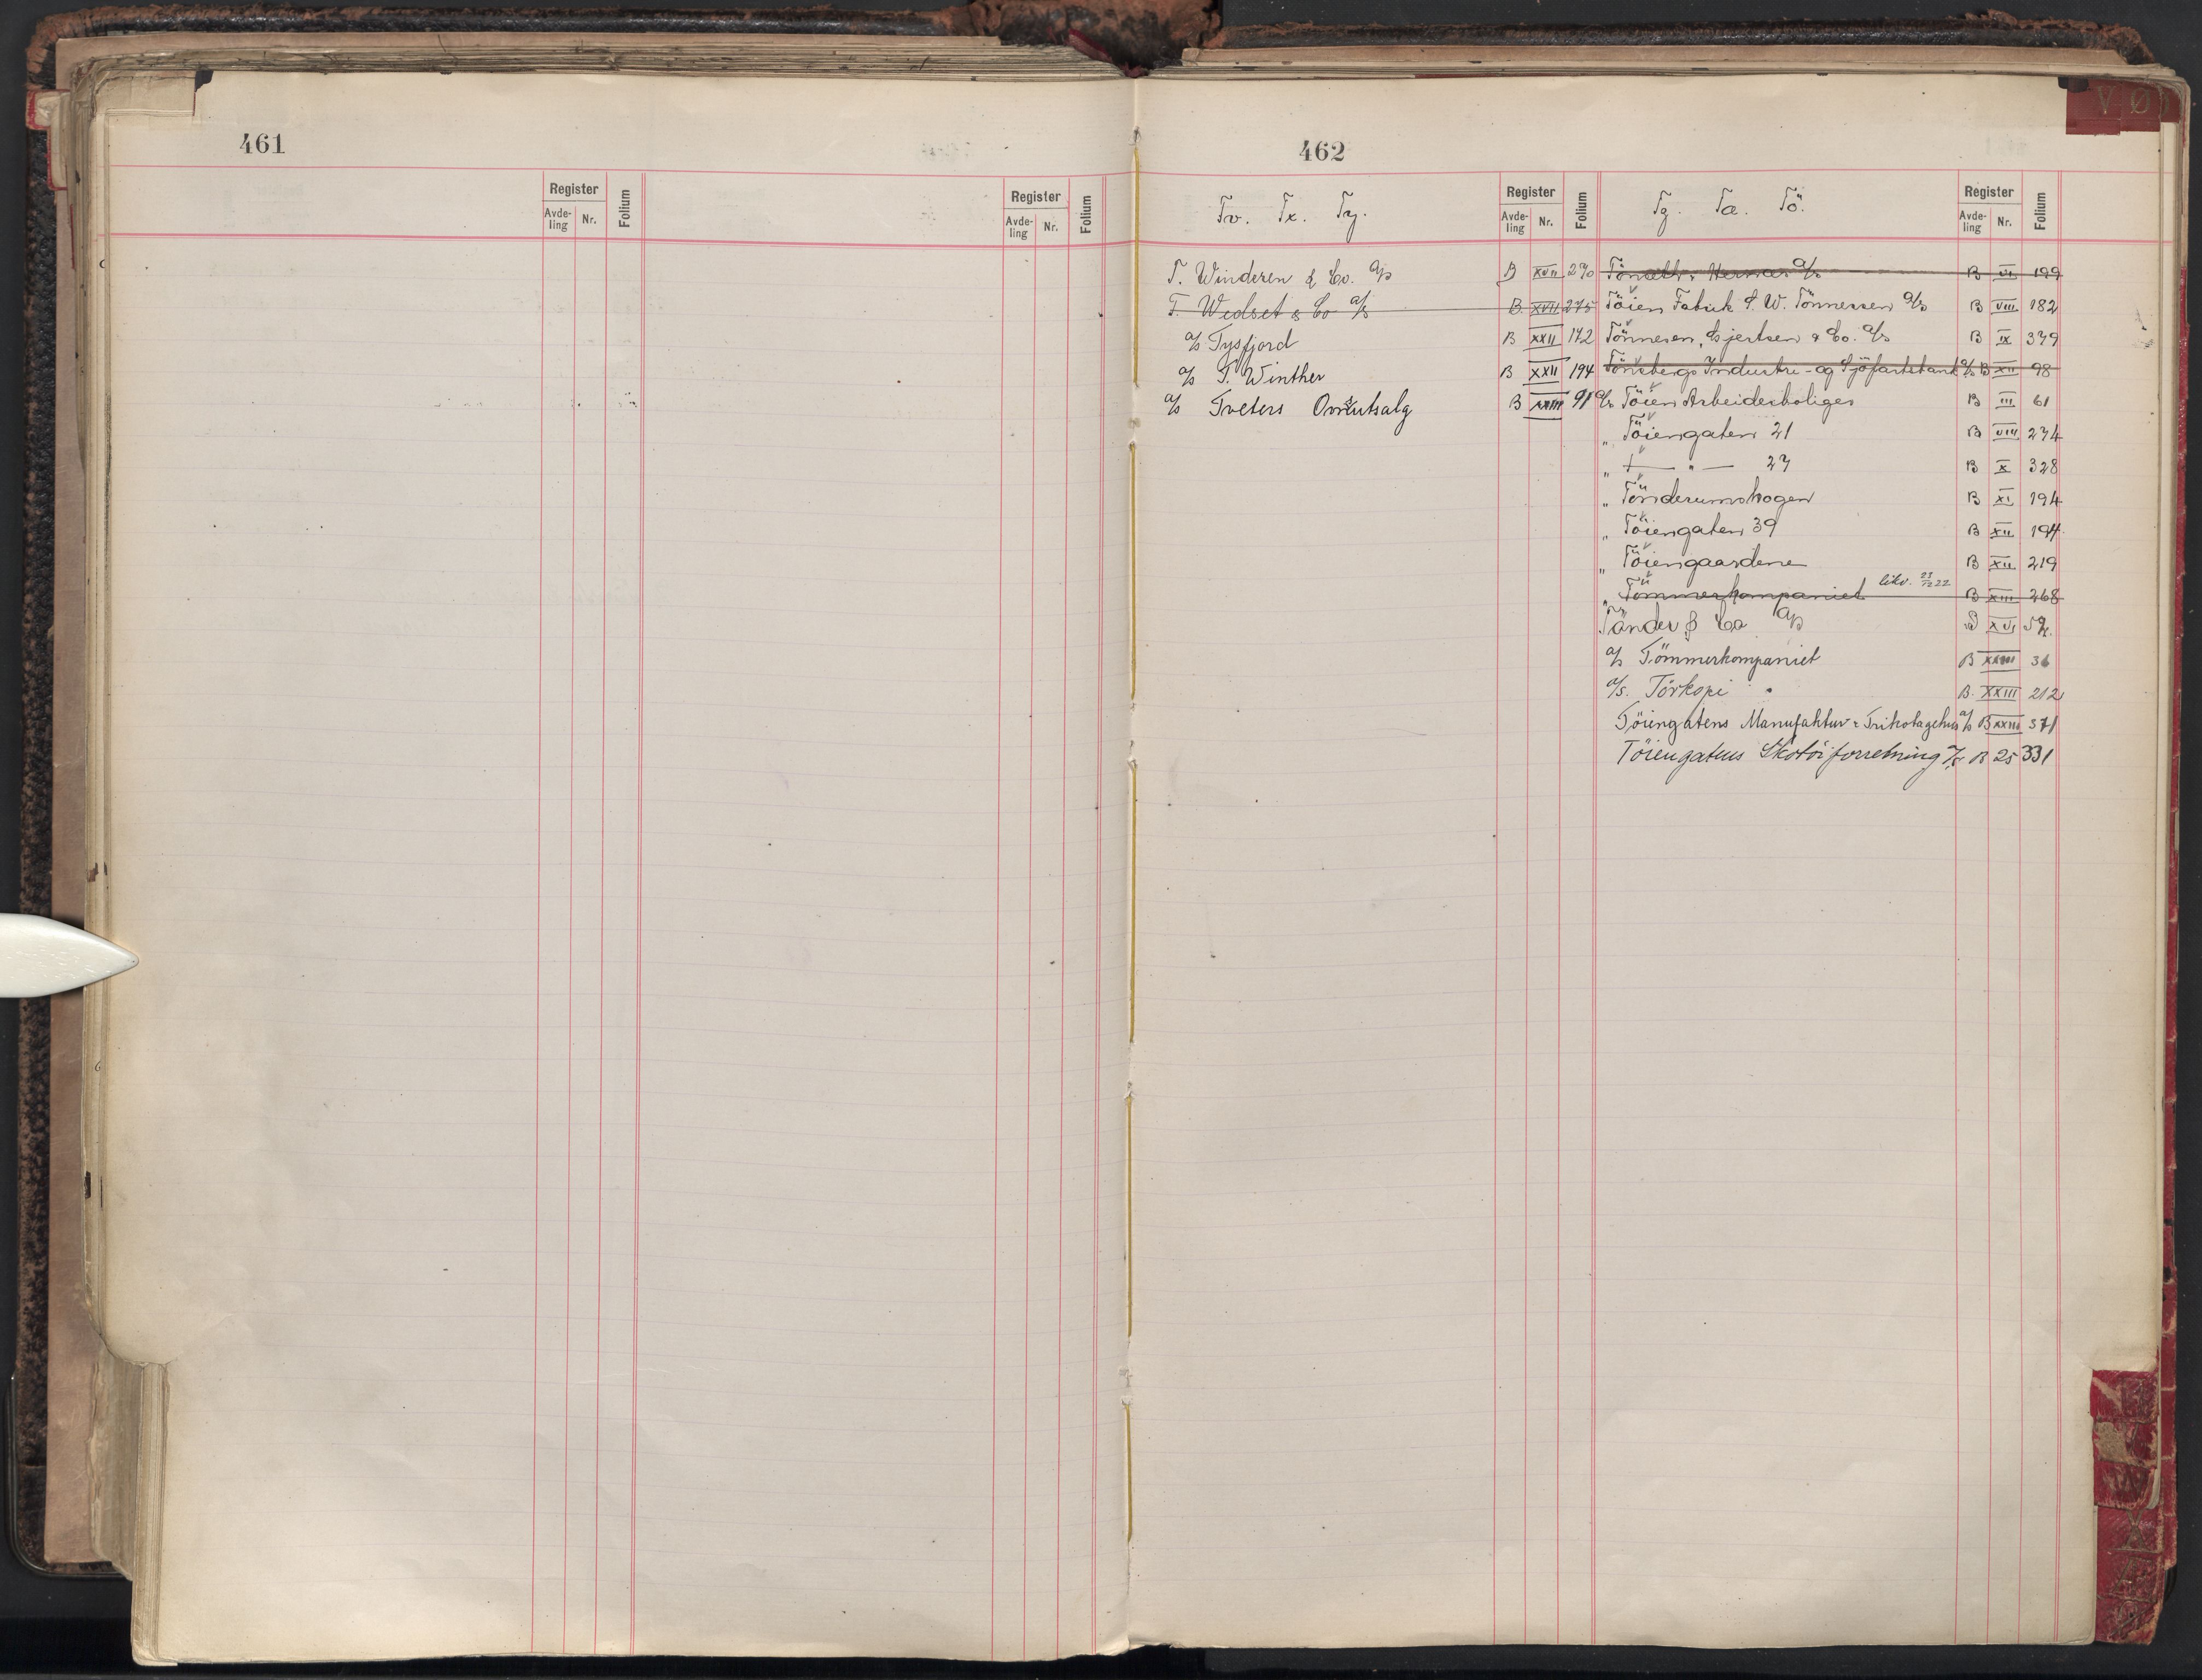 461
Register
Avde-
ling
Nr.
Folium
Register
Avde-
ling
Nr.
Folium
462
VØ
Tv. Tx. Ty.
Register
Avde-
ling
Nr.
Folium
T. Winderen & Co. A/S B XVII 270
T. Wedset & Co A/S B. XVII 275
A/S Tysfjord B XXII 172
A/S T. Winther B XXII 194
A/S Tveters Ovnsutsalg B XXIII 91
Tz. Tæ. Tö.
Register
Avde-
ling
Nr.
Folium
Herman A/S B VI 199
Töien Fabrik T. W. Tönnessen A/S B VIII 182
Tönnesen, Gjertsen & Co. A/S B IX 379
Tönsbergs Industri- og Sjöfartsbank A/S B XII 98
A/S Töien Arbeiderboliger B III 61
„ Töiengaten 21 B VIII 274
„ — „ — 27 B X 328
„ Tönderumskogen B XI 194
„ Töiengaten 39 B XII 194
„ Töiengaardene B XII 219
„ Tömmerkompaniet likv. 23/12 22 B XIII 268
Tönder & Co A/S B XVI 52.
A/S Tömmerkompaniet B XXIII 36
A/S. Törkopi B. XXIII 212
Töiengatens Manufaktur & Trikotagehus A/S B XXIII 371
Töiengatens Skotöiforretning A/S B 25 331